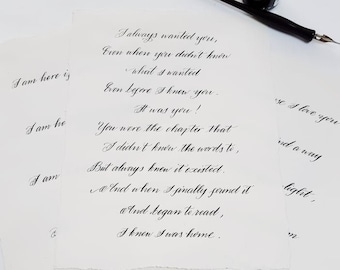 I always wanted you,
Even when you didn't know
what I wanted
Even before I knew you.
It was you!
You were the chapter that
I didn't know the words to,
But always knew it existed.
And when I finally found it
And began to read,
I knew I was home.
I am here
I am he
I am
I love you
a way
light,